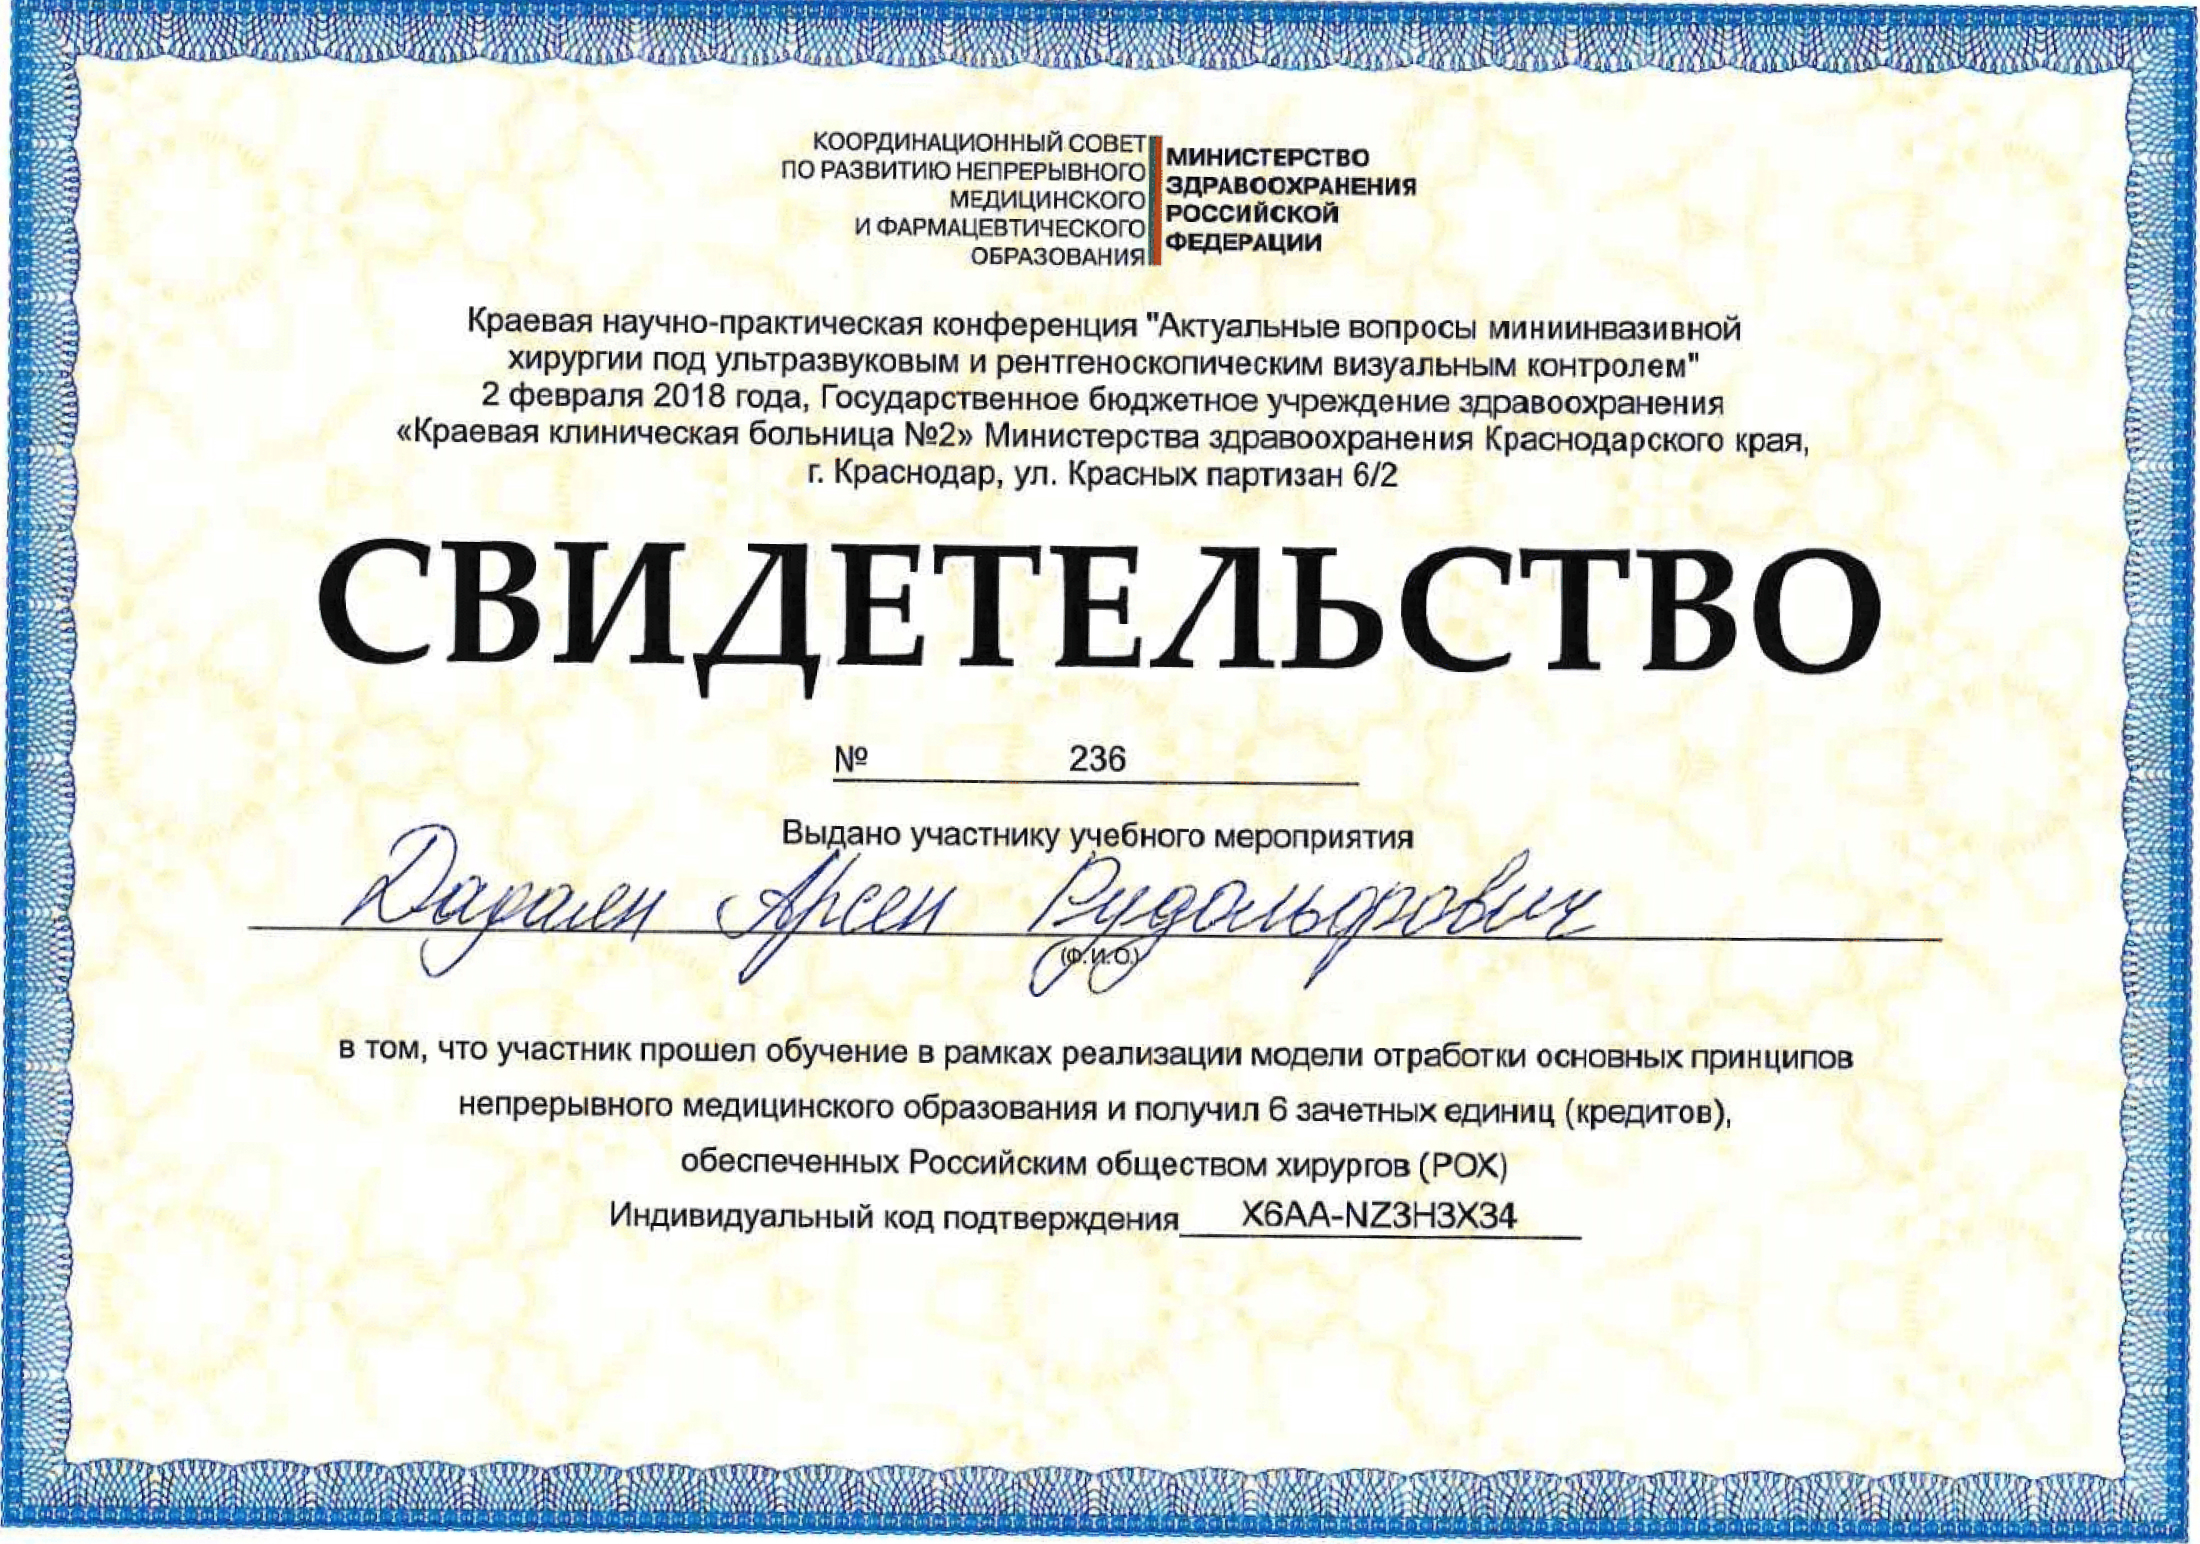 КООРДИНАЦИОННЫЙ СОВЕТ
ПО РАЗВИТИЮ НЕПРЕРЫВНОГО
МЕДИЦИНСКОГО
И ФАРМАЦЕВТИЧЕСКОГО
ОБРАЗОВАНИЯ
МИНИСТЕРСТВО
ЗДРАВООХРАНЕНИЯ
РОССИЙСКОЙ
ФЕДЕРАЦИИ
Краевая научно-практическая конференция "Актуальные вопросы миниинвазивной
хирургии под ультразвуковым и рентгеноскопическим визуальным контролем"
2 февраля 2018 года, Государственное бюджетное учреждение здравоохранения
«Краевая клиническая больница №2» Министерства здравоохранения Краснодарского края,
г. Краснодар, ул. Красных партизан 6/2
СВИДЕТЕЛЬСТВО
№ 236
Выдано участнику учебного мероприятия
Арсен Рудольфович
(Ф.И.О.)
в том, что участник прошел обучение в рамках реализации модели отработки основных принципов
непрерывного медицинского образования и получил 6 зачетных единиц (кредитов),
обеспеченных Российским обществом хирургов (РОХ)
Индивидуальный код подтверждения X6AA-NZ3H3X34